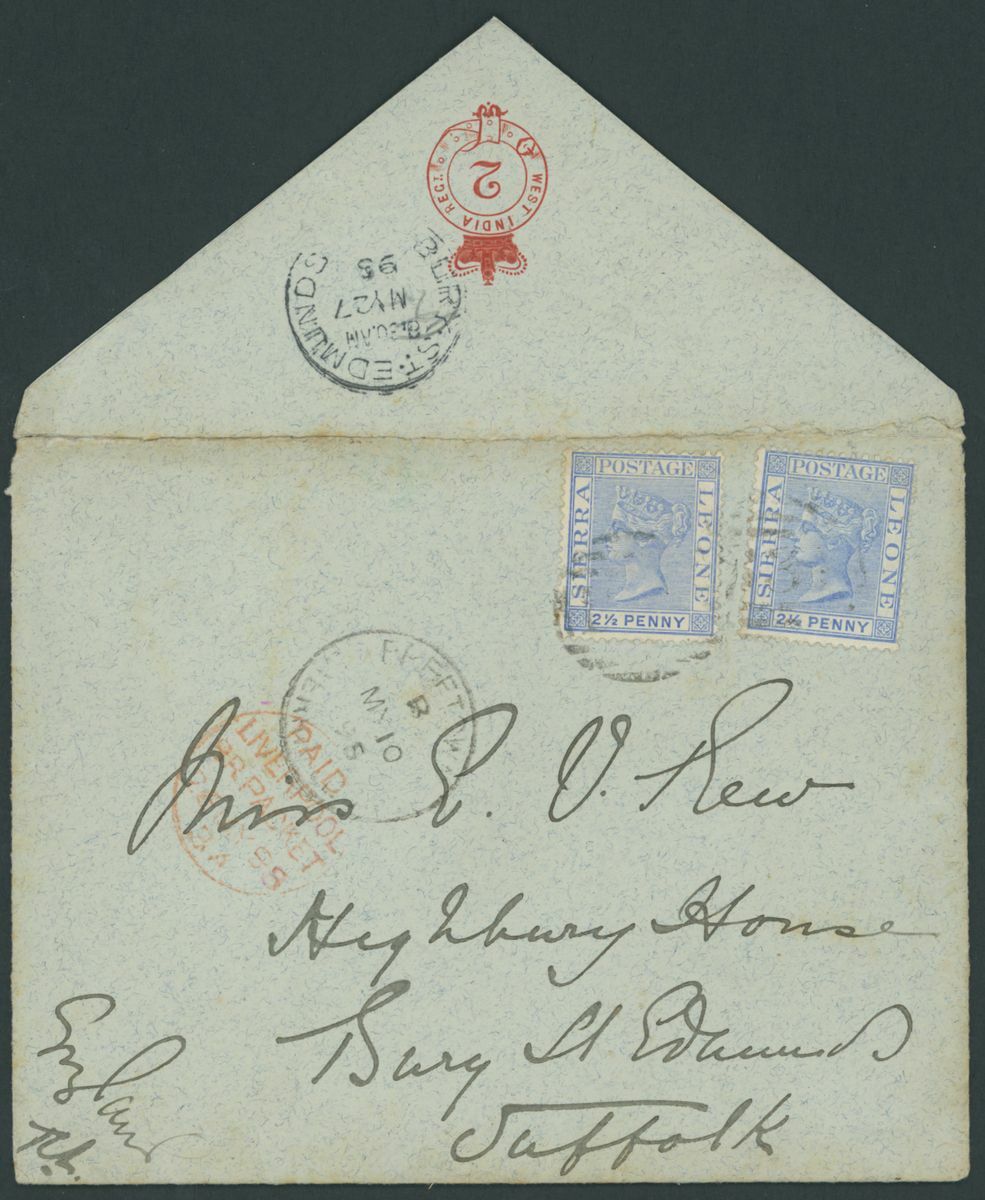 2
WEST INDIA REGT.
BURY ST. EDMUNDS
8.30AM
MY 27
95
POSTAGE
SIERRA
LEONE
2½ PENNY
POSTAGE
SIERRA
LEONE
2½ PENNY
B
MY 10
95
PAID
LIVERPOOL
BR. PACKET
Miss E. V. Rew
Highbury House
Bury St Edmunds
Suffolk
England